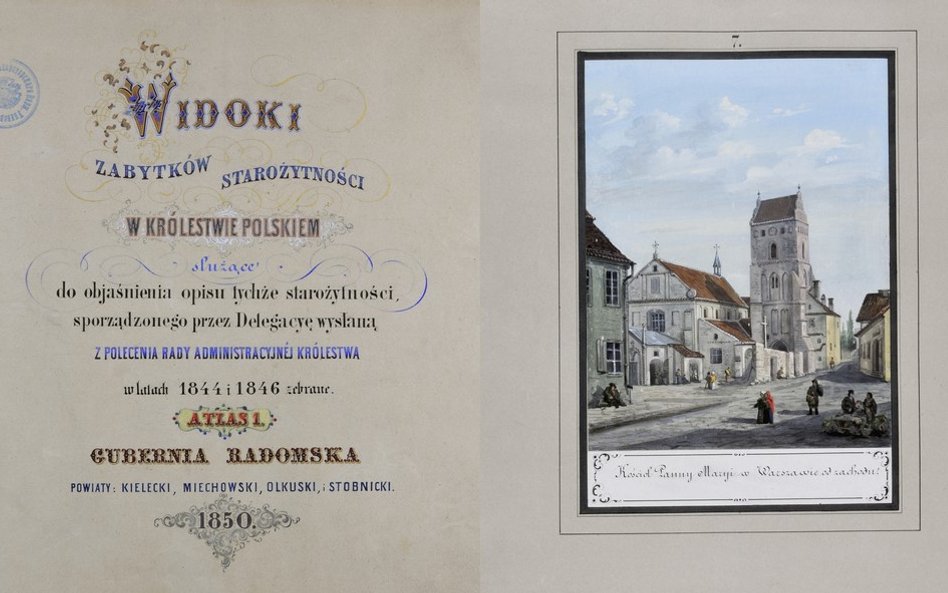 WIDOKI
ZABYTKÓW STAROŻYTNOŚCI
W KRÓLESTWIE POLSKIEM
służące
do objaśnienia opisu tychże starożytności,
sporządzonego przez Delegacyę wysłaną
Z POLECENIA RADY ADMINISTRACYJNÉJ KRÓLESTWA
w latach 1844 i 1846 zebrane.
ATLAS 1.
GUBERNIA RADOMSKA
POWIATY: KIELECKI, MIECHOWSKI, OLKUSKI, i STOBNICKI.
1850.
7.
Kościół Panny Maryi w Warszawie od zachodu.